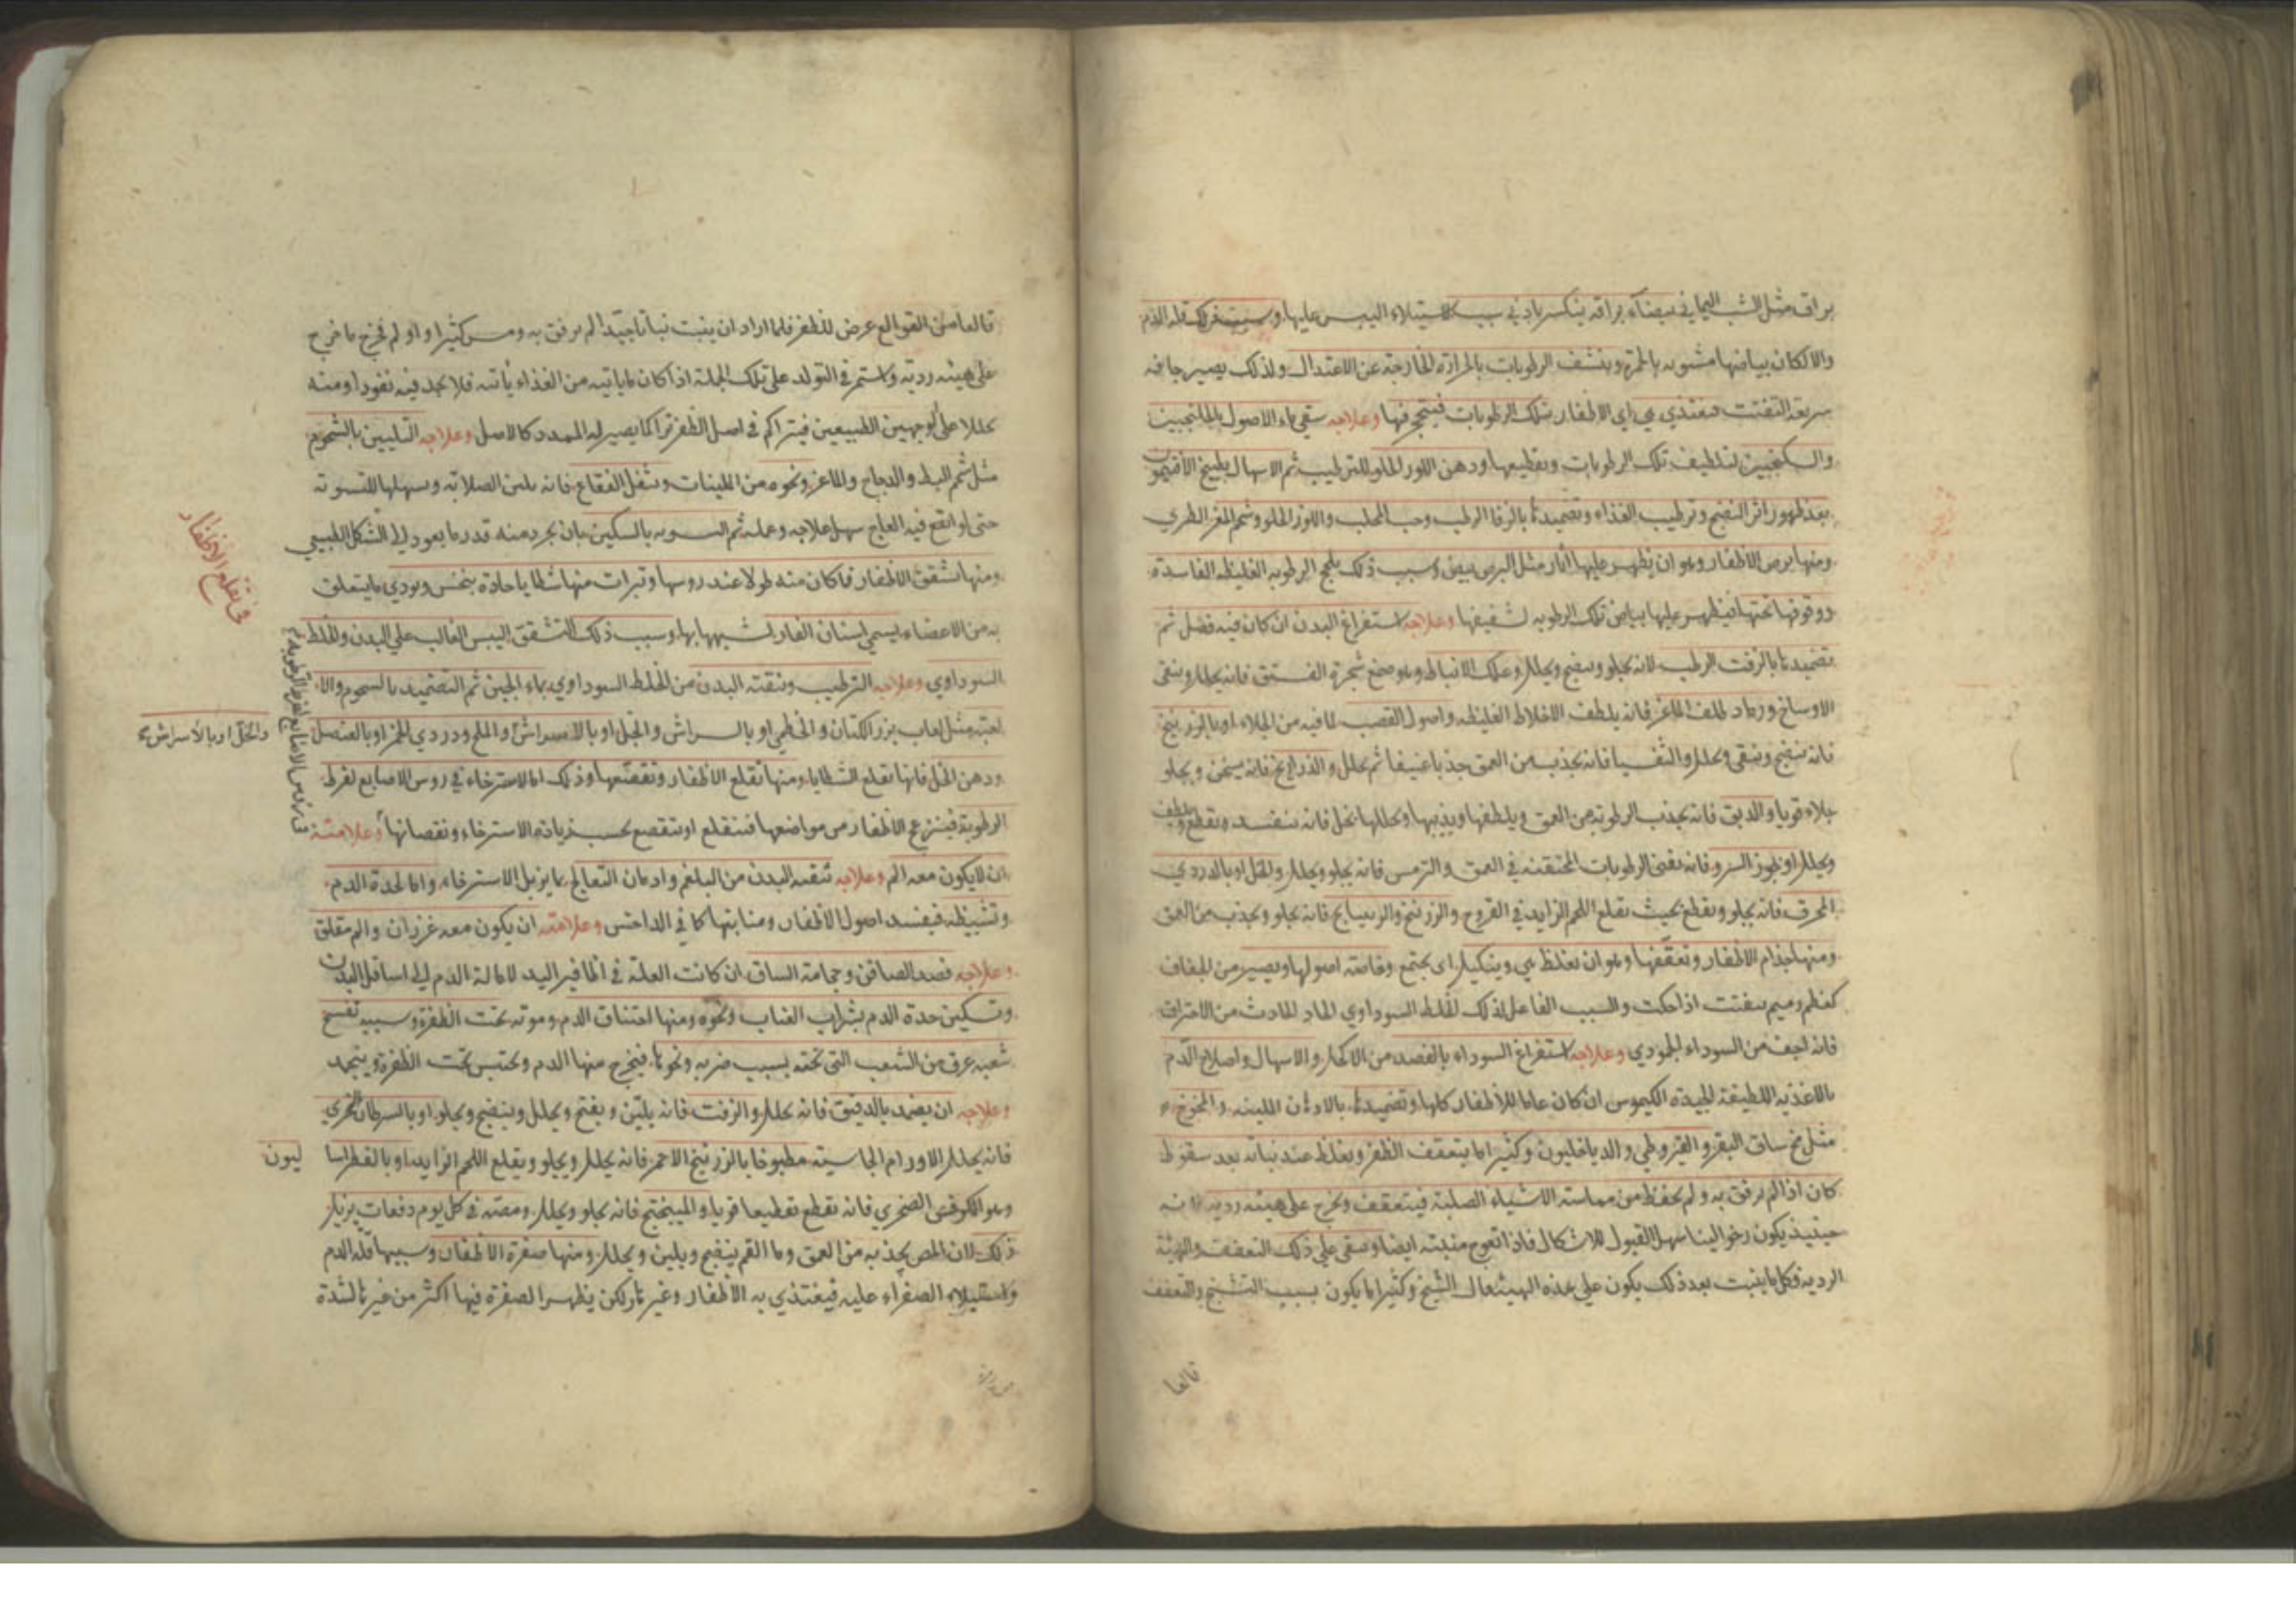 براق مثل الشب اليماني بيضاء براقه ينكسر بادني سبب لاستيلاء اليبس عليها وسبب ذلك قله الدم
والا لكان بياضها مشوبه بالحمرة وينشف الرطوبات بالحرارة الخارجة عن الاعتدال ولذلك يصير جافه
سريعة التفتت فيغتذي بي اي الاظفار بتلك الرطوبات فيتحجر فيها وعلاجه سقي ماء الاصول بالجلنجبين
والسكنجبين لتلطيف تلك الرطوبات وتقطيعها ودهن اللوز الحلو للترطيب ثم الاسهال بطبيخ الافتيمون
بعد ظهور اثر النضج وترطيب الغذاء وتضميدها بالزفا الرطب وحب المحلب واللوز الحلو وشحم المعز الطري
ومنها برص الاظفار وهو ان يظهر عليها اثار مثل البرص بيض وسبب ذلك بلحج الرطوبه الغليظه الفاسدة
ووقوفها تحتها فيظهر عليها بياض تلك الرطوبه لشفيفها وعلاجه استفراغ البدن ان كان فيه فضل ثم
تضميدها بالزفت الرطب لانه يجلو وينضج ويحلل وعلك الانباط وهو صمغ شجرة الفستق فانه يحلل وينقي
الاوساخ ورماد ظلف الماعز فانه يلطف الاخلاط الغليظه واصول القصب لما فيه من الجلاء او بالزرنيخ
فانه ينضج وينقي ويحلل والثفسيا فانه يجذب من العمق جذبا عنيفا ثم يحلل والذراريح فانه يسخن ويجلو
جلاء قويا والدبق فانه يجذب الرطوبة من العمق ويلطفها ويذيبها ويحللها بخل فانه ينفذ ويقطع ويلطف
ويحلل او بجوز السرو فانه يفني الرطوبات المحتقنه في العمق والترمس فانه يجلو ويحلل والخل او بالدردي
المحرق فانه يجلو ويقطع بحيث يقلع اللحم الزايد في القروح والزرنيخ والريتيانج فانه يجلو ويجذب من العمق
ومنها جذام الاظفار وتعقفها وهو ان تغلظ بي ويتكتل اي يجتمع وخاصة اصولها ويصير من الجفاف
كعظم رميم يتفتت اذا حكت والسبب الفاعل لذلك الخلط السوداوي الحاد الحادث من الاحتراق
فانه اجف من السوداء الجمودي وعلاجه استفراغ السوداء بالفصد من الاكحل والاسهال واصلاح الدم
بالاغذيه اللطيفة الجيدة الكيموس ان كان عاما للاظفار كلها وتضميدها بالادهان اللينه والمخوخ
مثل مخ ساق البقر والقيروطي والدياخليون وكثيرا ما يتعقف الظفر ويغلظ عند نباته بعد سقوط
كان اذا لم يرفق به ولم يحفظ من مماسة الاشياء الصلبة فيتعقف ويخرج على هيئه رديه لانه
حينيذ يكون رخوا لينا سهل القبول للاشكال فاذا تعوج منبته ايضا وبقي علي ذلك التعقف والهيئة
الرديه فكل ما ينبت بعد ذلك يكون علي هذه الهيئة قال الشيخ وكثيرا ما يكون بسبب التشنج والتعقف
قالعا
قالعا من القوالع عرض للظفر فلما اراد ان ينبت نباتا جيدا لم يرفق به ومس كثيرا او لم يخرج ما خرج
على هيئه رديه واستمر في التولد على تلك الجملة اذا كان ما ياتيه من الغذاء ياتيه فلا يجد فيه نفوذا ومنه
تحللا على الوجهين الطبيعيين فيتراكم في اصل الظفر تراكما يصير له الممدد كالاصل وعلاجه التليين بالشحوم
مثل شحم البط والدجاج والماعز ونحوه من الملينات وبثفل الفقاع فانه يلين الصلابه ويسهلها للتسويه
حتى لو اتفع فيه العلاج سهل علاجه وعمله ثم التسويه بالسكين بان يجرد منه قدر ما يعود الى الشكل الطبيعي
ومنها تشقق الاظفار فما كان منه طولا عند روسها وتبرات منها شظايا حادة ينخس ويوذي ما يتعلق
به من الاعضاء يسمي اسنان الفار لشبهها بها وسبب ذلك التشقق اليبس الغالب علي البدن والخلط
السوداوي وعلاجه الترطيب وتنقيه البدن من الخلط السوداوي بماء الجبن ثم التضميد بالشحوم والا
لعبه مثل لعاب بزر الكتان والخطمي او بالسراش والخل او بالاسراش والملح ودردي الخمر او بالعنصل
ودهن الخل فانها تقلع الشظايا ومنها تقلع الاظفار وتقصعها وذلك اما لاسترخاء في روس الاصابع لفرط
الرطوبة فينزعج الاظفار من مواضعها فتنقلع او تتقصع بحسب زيادة الاسترخاء ونقصانها وعلامته
ان لا يكون معه الم وعلاجه تنقيه البدن من البلغم وادمان التعالج بما يزيل الاسترخاء واما لحدة الدم
وتشيطه فيفسد اصول الاظفار ومنابتها كما في الداحس وعلامته ان يكون معه غرزان والم مقلق
وعلاجه فصد الصافن وحجامة الساق ان كانت العلة في اظافير اليد لامالة الدم الي اسافل البدن
وتسكين حدة الدم بشراب العناب ونحوه ومنها اختناق الدم وموته تحت الظفرة وسببه تفسخ
شعبه عرق من الشعب التي تحته بسبب ضربه ونحوها فيخرج منها الدم ويحتبس تحت الظفرة وينجمد
وعلاجه ان يضمد بالدقيق فانه يحلل والزفت فانه يلين ويفتح ويحلل وينضج ويجلو او بالسرطان البحري
فانه يحلل الاورام الجاسيه مطبوخا بالزرنيخ الاحمر فانه يحلل ويجلو ويقلع اللحم الزايد او بالفطراسا
ليون
وهو الكرفس الصخري فانه يقطع تقطيعا قويا والميبختج فانه يجلو ويحلل ومصه في كل يوم دفعات يزيل
ذلك لان المص يجذبه من العمق وما الفم ينضج ويلين ويحلل ومنها صفرة الاظفار وسببها قلة الدم
واستيلاء الصفراء عليه فيغتذي به الاظفار وغيرها لكن يظهر الصفرة فيها اكثر من غيرها لشدة
في تقلع الاظفار
والخل او بالاسراش